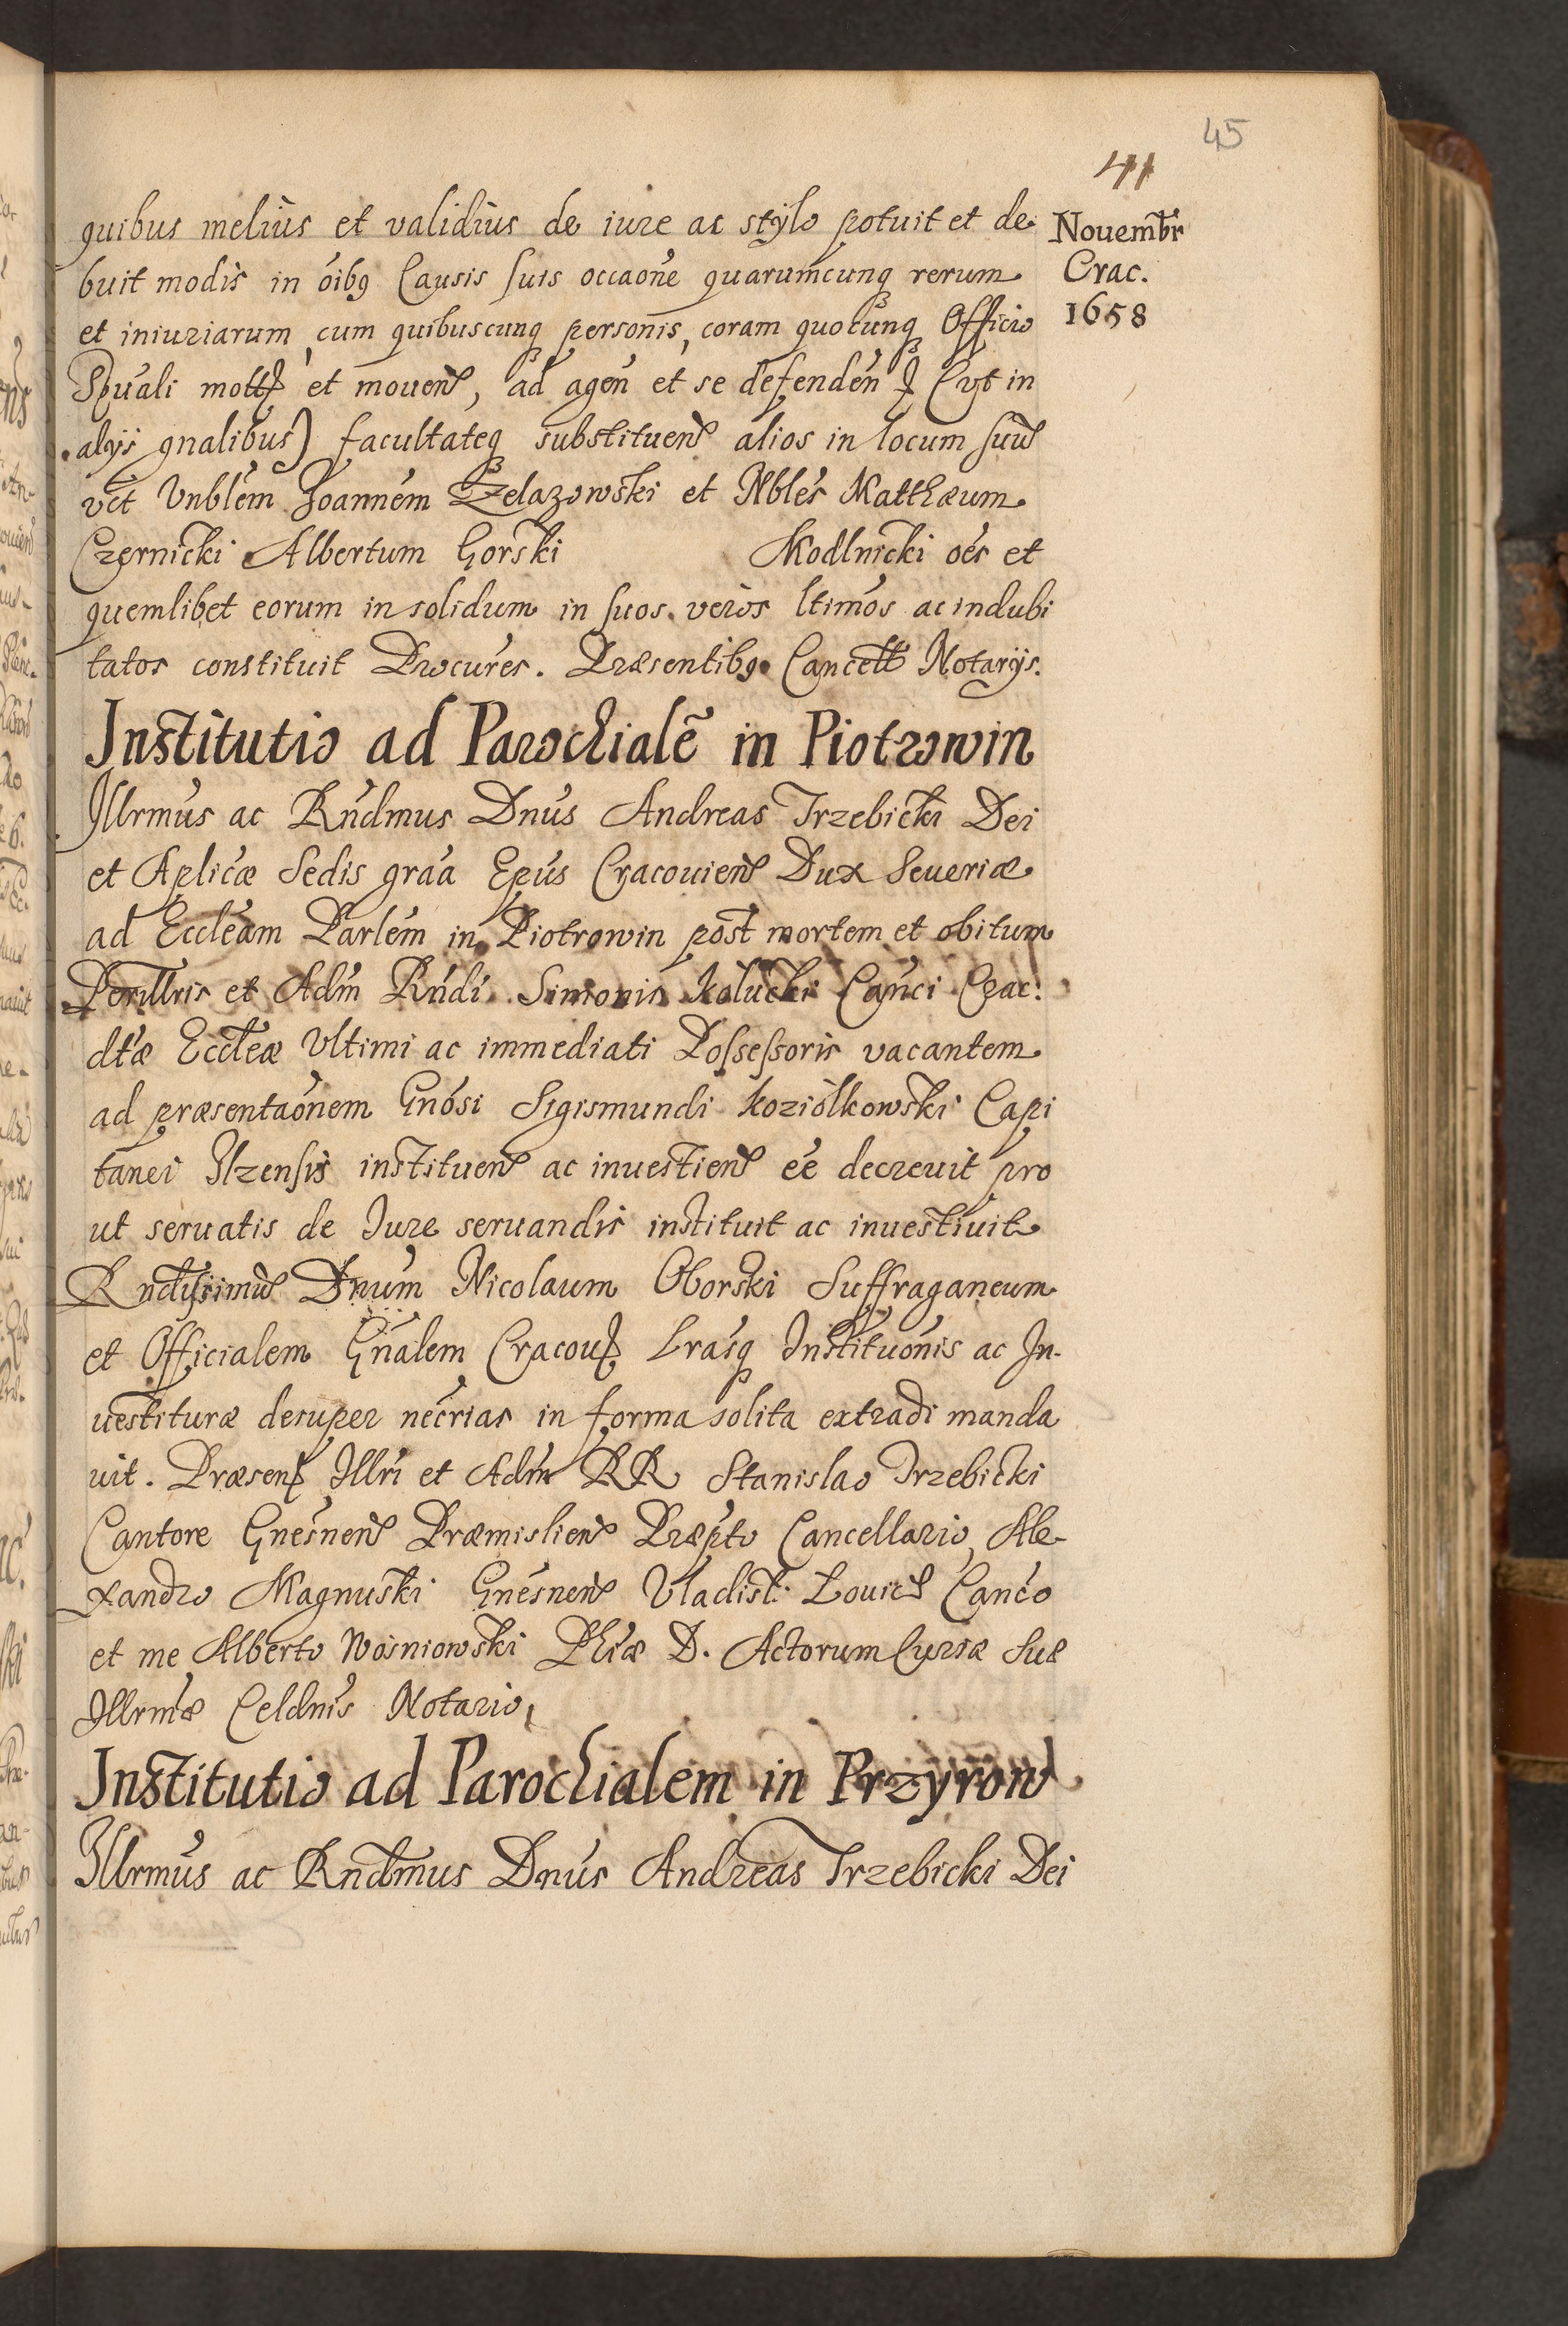 45
41
Nouembr
Crac.
1658
quibus meliùs et validiùs de iure ac stÿlo potuit et de
buit modis in óibq Causis suis occaoñe quarumcunq rerum
et iniuriarum, cum quibuscunq personis, coram quocunq Officio
Spuali mott et mouen, ad agen et se defenden (vt in
alÿs gnalibus) facultateq substituen alios in locum suu
vct Vnblem Joannem Zelazowski et Nbles Matthæum
Czernicki Albertum Gorski Modlnicki oés et
quemlibet eorum in solidum in suos veros ltimos ac indubi
tatos constituit Procures. Præsentibq Cancell Notarÿs.
Institutio ad Parochialẽ in Piotrowin
Jllrmus ac Rndmus Dnus Andreas Trzebicki Dei
et Aplicæ Sedis graa Epus Cracouien Dux Seueriæ
ad Eccleam Parlem in Piotrowin post mortem et obitum
Perillris et Adm Rndi Simonis Kolucki Canci Crac.
dtæ Eccleæ Vltimi ac immediati Possessoris vacantem
ad præsentaonem Gnosi Sigismundi Koziolkowski Capi
tanei Jlzensis instituen ac inuestien eé decreuit pro
ut seruatis de Jure seruandis instituit ac inuestiuit
Rndissimu Dnum Nicolaum Oborski Suffraganeum
et Officialem Gnalem Cracou Lrasq Instituonis ac In-
uestituræ desuper necrias in forma solita extradi manda
uit. Præsen Jllri et Adm RR Stanislao Trzebicki
Cantore Gnesnen Præmislien Præpto Cancellario, Ale-
xandro Magnuski Gnesnen Vladisl. Louic Canco
et me Alberto Wosniowski Phiæ D. Actorum Curiæ Suæ
Jllrmæ Celdnis Notario,
Institutio ad Parochialem in Przyrow
Jllrmus ac Rndmus Dnus Andreas Trzebicki Dei